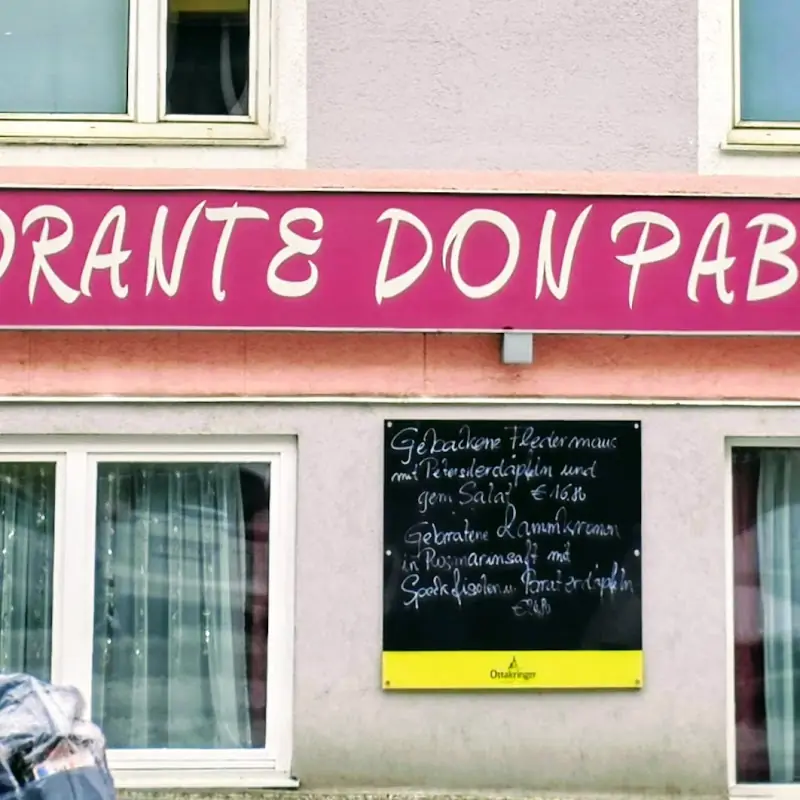 ORANTE DON PAB
Gebackene Fledermaus
mit Petersilerdäpfeln und
gem Salat € 16,80
Gebratene Lammkronen
in Rosmarinsaft mit
Speckfisolen u.
Ottakringer